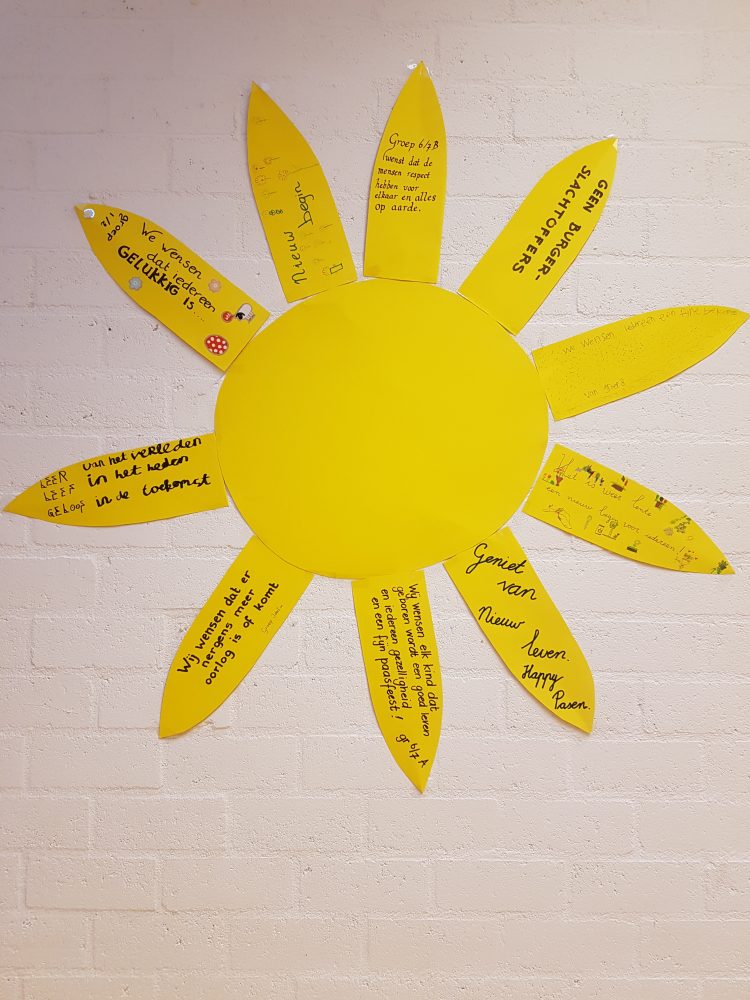 Groep 6/7B
wenst dat de
mensen respect
hebben voor
elkaar en alles
op aarde.
GEEN BURGER-
SLACHTOFFERS
We wensen iedereen een fijne
van
weer lente
een nieuw begin voor iedereen!
Geniet
van
Nieuw
leven.
Happy
Pasen.
Wij wensen elk kind dat
geboren wordt een goed leven
en iedereen gezelligheid
en een fijn paasfeest!
gr 6/7 A
Wij wensen dat er
nergens meer
oorlog is of komt
LEER van het verleden
LEEF in het heden
GELOOF in de toekomst
groep 1/2
We wensen
dat iedereen
GELUKKIG IS....
Nieuw begin